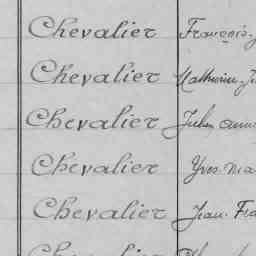 Chevalier François
Chevalier Mathurin
Chevalier Julien
Chevalier Yves
Chevalier Jean
Chevalier